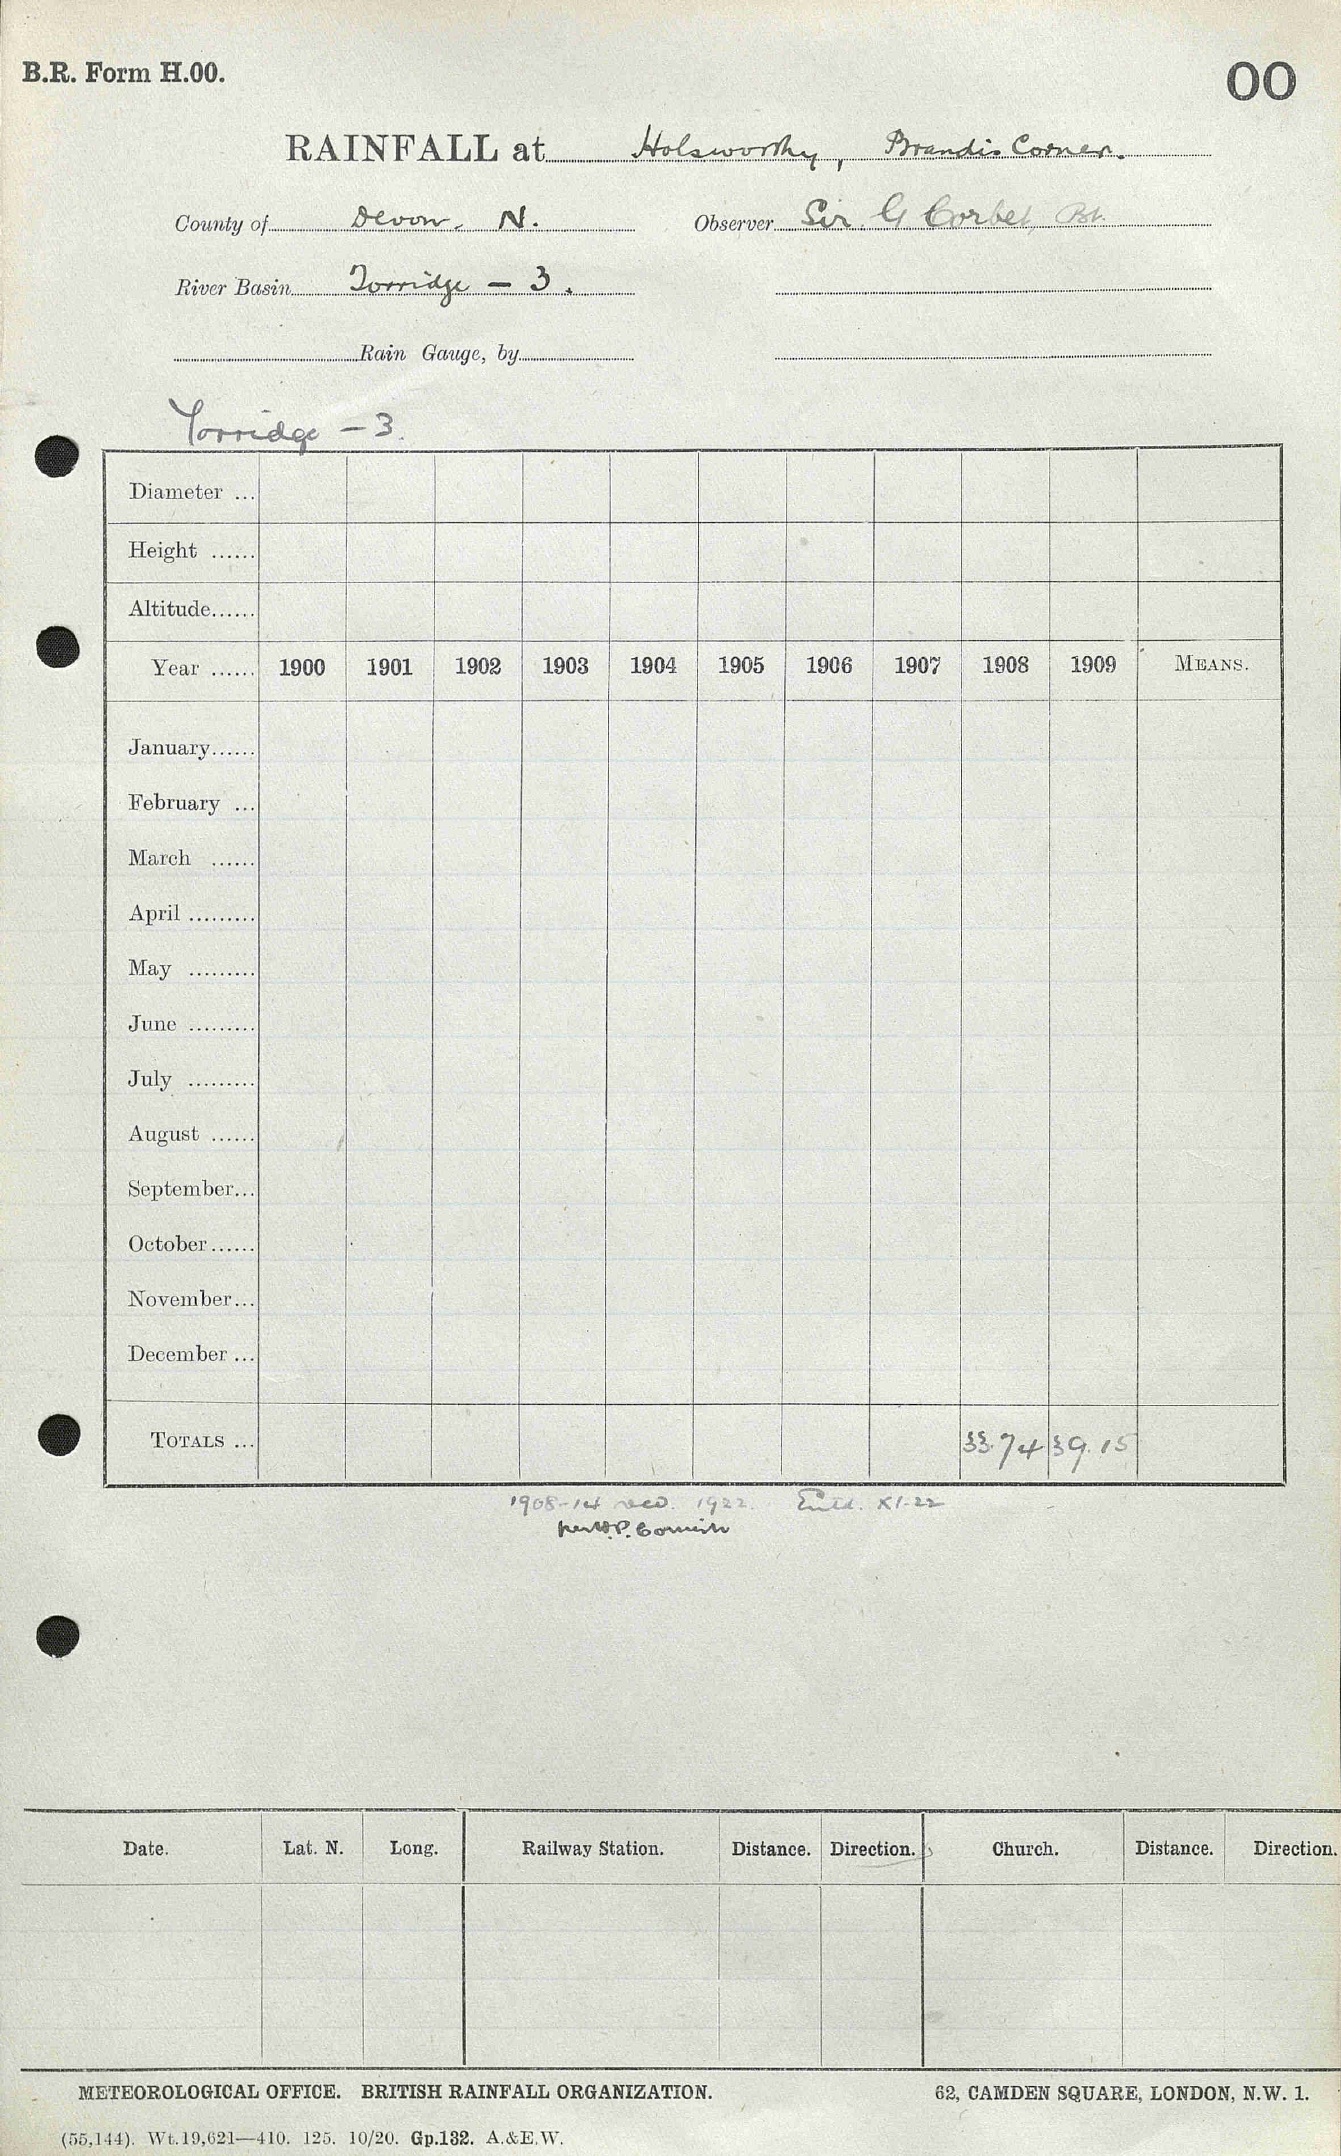 B.R. Form H.00.
00
RAINFALL at Holsworthy, Brandis Corner.
County of Devon, N. Observer Sir G Corbet, Bt.
River Basin Torridge - 3.
Rain Gauge, by
Torridge - 3.
Diameter ...
Height ......
Altitude......
Year ...... 1900 1901 1902 1903 1904 1905 1906 1907 1908 1909 MEANS.
January......
February ...
March ......
April .........
May .........
June .........
July .........
August ......
September...
October......
November...
December ...
TOTALS ... 33.74 39.15
1908-14 recd. 1922. Entd. XI-22
per H.P. Cornish
Date. Lat. N. Long. Railway Station. Distance. Direction. Church. Distance. Direction.
METEOROLOGICAL OFFICE. BRITISH RAINFALL ORGANIZATION. 62, CAMDEN SQUARE, LONDON, N.W. 1.
(55,144). Wt.19,621—410. 125. 10/20. Gp.132. A.&E.W.